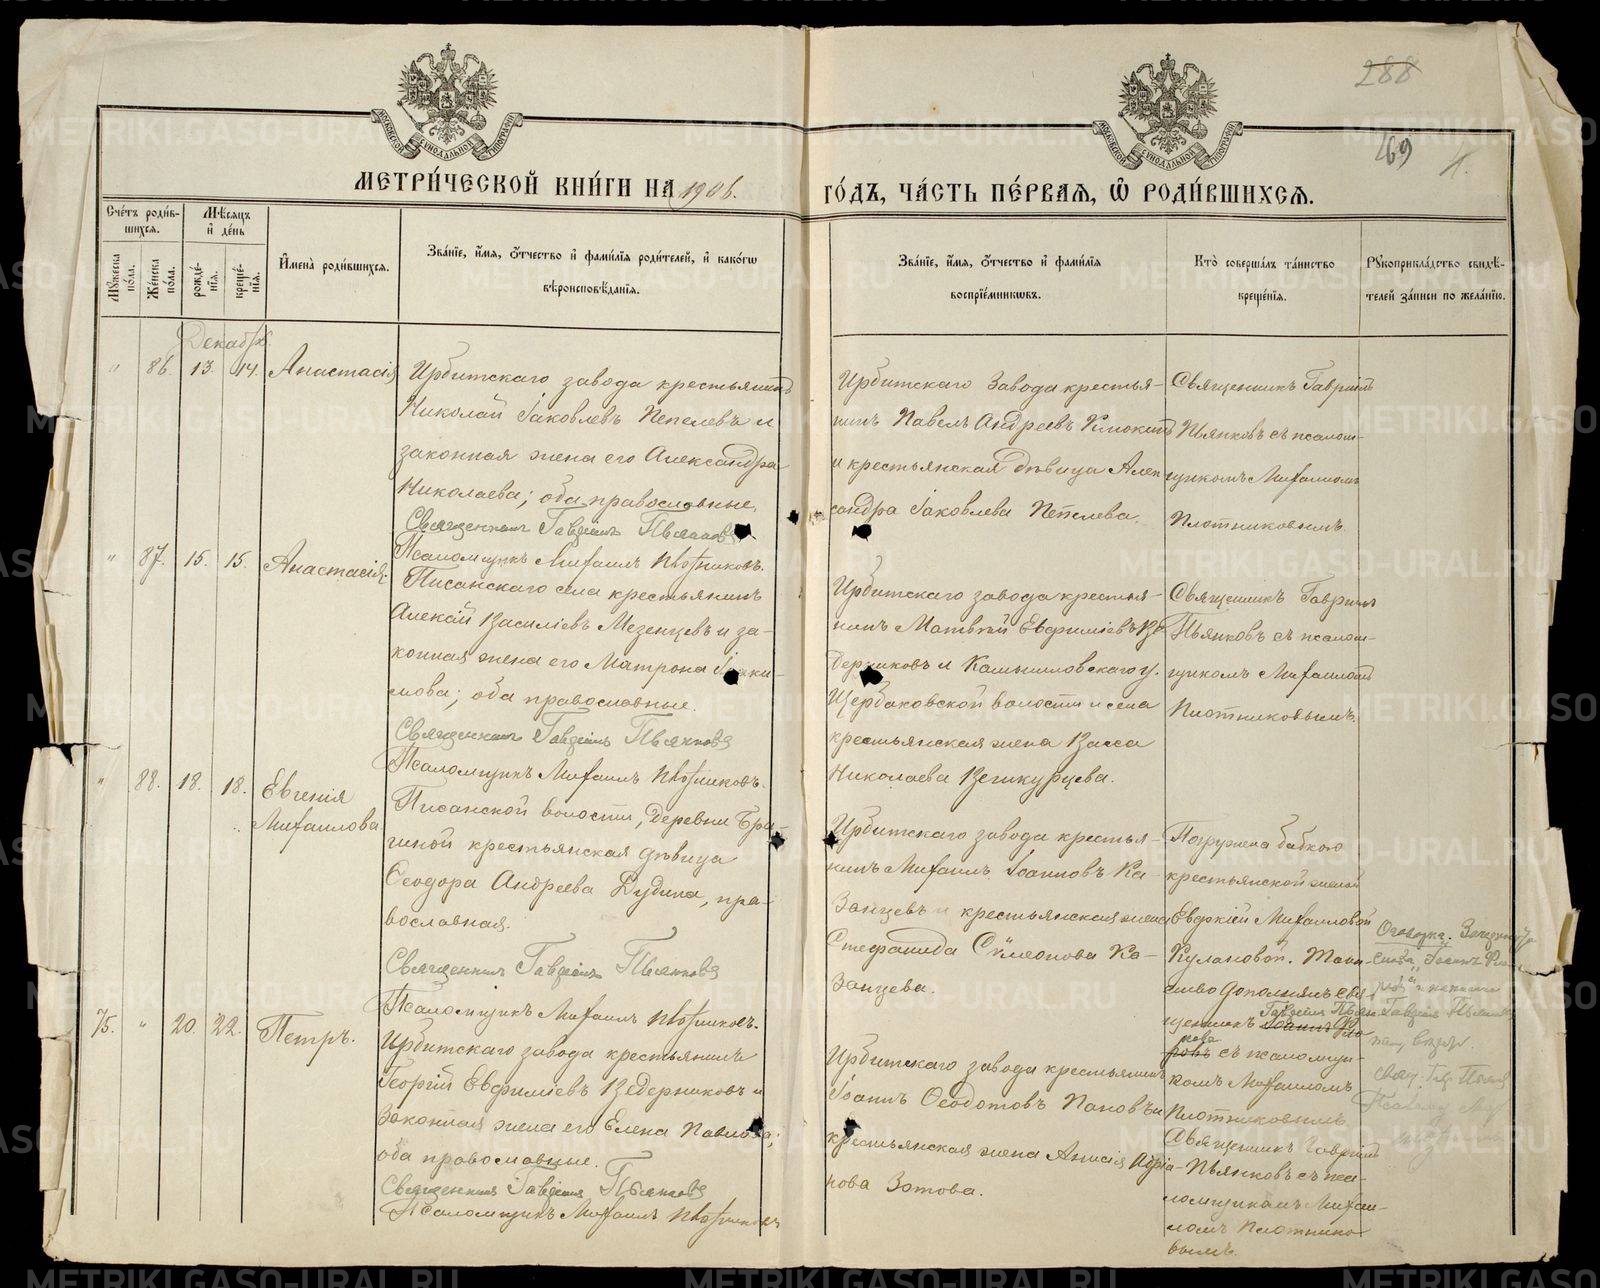 288
169
МОСКОВСКОЙ СѴНОДАЛЬНОЙ ТИПОГРАФІИ
МОСКОВСКОЙ СѴНОДАЛЬНОЙ ТИПОГРАФІИ
МЕТРИ́ЧЕСКОЙ КНИ́ГИ НА 1906.
ГО́ДЪ, ЧА́СТЬ ПЕ́РВАЯ, Ѽ РОДИ́ВШИХСЯ.
Сче́тъ роди́в-
шихся.
Мѣ́сяцъ
и҆ де́нь
Мꙋ́жеска по́ла.
Же́нска по́ла.
рожде́-
нїя.
креще́-
нїя.
И҆мена̀ роди́вшихся.
Зва́нїе, и҆́мя, ѻ҆́тчество и҆ фами́лїя роди́телей, и҆ како́гѡ
вѣроисповѣ́данїя.
Зва́нїе, и҆́мя, ѻ҆́тчество и҆ фами́лїя
воспрїе́мникѡвъ.
Кто̀ соверша́лъ та́инство
креще́нїя.
Рꙋкоприкла́дство свидѣ́-
телей за́писи по жела́нїю.
Декабрь
" 86. 13. 14. Анастасія
Ирбитскаго завода крестьянинъ
Николай Іаковлевъ Пепелевъ и
законная жена его Александра
Николаева; оба православные.
Священникъ Гавріилъ Пьянковъ
Псаломщикъ Михаилъ Плотниковъ.
Ирбитскаго Завода крестья-
нинъ Павелъ Андреевъ Клюкинъ
и крестьянская дѣвица Алек-
сандра Іаковлева Пепелева.
Священникъ Гавріилъ
Пьянковъ съ псалом-
щикомъ Михаиломъ
Плотниковымъ.
" 87. 15. 15. Анастасія.
Писанскаго села крестьянинъ
Алексій Василіевъ Мезенцевъ и за-
конная жена его Матрона Іоаки-
мова; оба православные.
Священникъ Гавріилъ Пьянковъ
Псаломщикъ Михаилъ Плотниковъ.
Ирбитскаго завода крестья-
нинъ Матвѣй Евфиміевъ Ве-
дерниковъ и Камышловскаго у.
Щербаковской волости и села
крестьянская жена Васса
Николаева Великурцева.
Священникъ Гавріилъ
Пьянковъ съ псалом-
щикомъ Михаиломъ
Плотниковымъ.
" 88. 18. 18. Евгенія
Михаилова
Писанской волости, деревни Бра-
гиной крестьянская дѣвица
Ѳеодора Андреева Дудина, пра-
вославная.
Священникъ Гавріилъ Пьянковъ
Псаломщикъ Михаилъ Плотниковъ.
Ирбитскаго завода крестья-
нинъ Михаилъ Іоанновъ Ка-
занцевъ и крестьянская жена
Стефанида Сѵмеонова Ка-
занцева.
Погружена бабкою
крестьянской женой
Евфкіей Михаиловой
Кулаковой. Таин-
ство дополнилъ свя-
Гавріилъ Пьян-
щенникъ Іоаннъ Фло-
ковъ
ровъ съ псаломщи-
комъ Михаиломъ
Плотниковымъ
Оговорка. Зачеркнуто
слова "Іоаннъ Фло-
ровъ" и написано
Гавріилъ Пьянковъ
75. " 20. 22. Петръ.
Ирбитскаго завода крестьянинъ
Георгій Евфиміевъ Ведерниковъ и
законная жена его Елена Павлова;
оба православные.
Священникъ Гавріилъ Пьянковъ
Псаломщикъ Михаилъ Плотниковъ
Ирбитскаго завода крестьянинъ
Іоаннъ Ѳеодотовъ Пановъ и
крестьянская жена Анисія Адріа-
нова Зотова.
Священникъ Гавріилъ
Пьянковъ съ пса-
ломщикомъ Михаи-
ломъ Плотнико-
вымъ.
METRIKI.GASO-URAL.RU